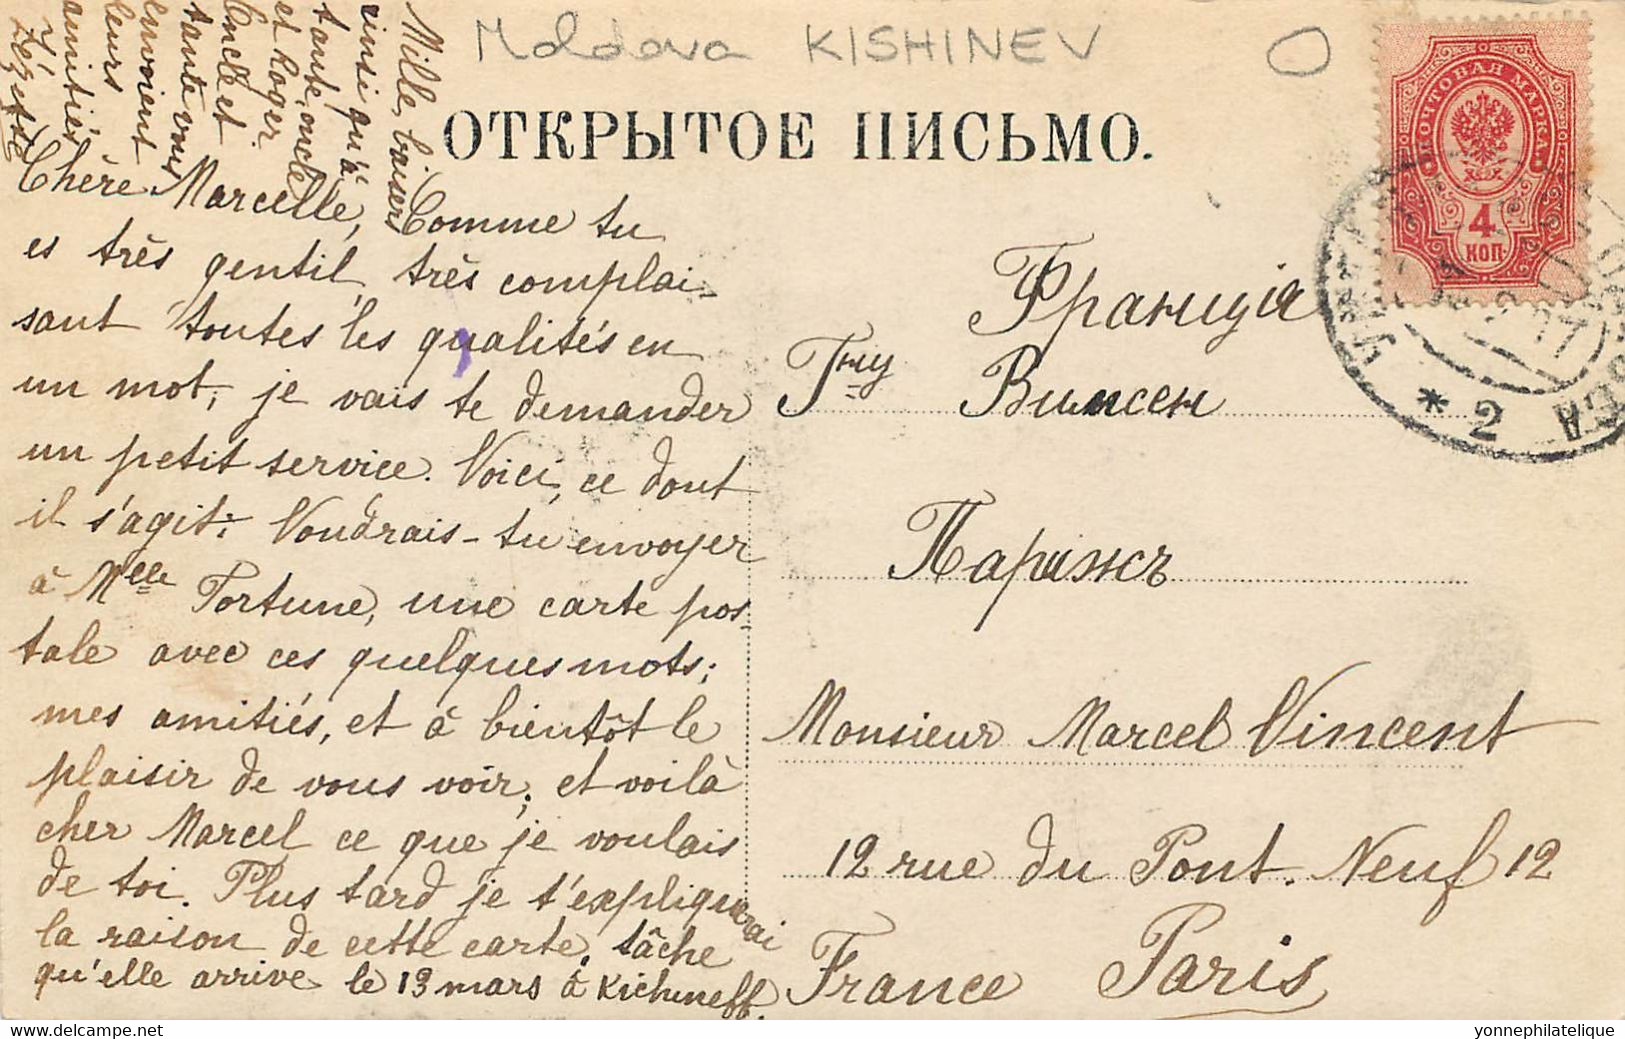 Moldova KISHINEV
ОТКРЫТОЕ ПИСЬМО.
ПОЧТОВАЯ МАРКА
4
КОП.
Chère Marcelle, Comme tu
es très gentil, très complai-
sant toutes les qualités en
un mot, je vais te demander
un petit service. Voici, ce dont
il s'agit: Voudrais-tu envoyer
à Mlle Fortune, une carte pos-
tale avec ces quelques mots;
mes amitiés, et à bientôt le
plaisir de vous voir; et voilà
cher Marcel ce que je voulais
de toi. Plus tard je t'expliquerai
la raison de cette carte, tâche
qu'elle arrive le 13 mars à Kichineff.
Mille baisers
ainsi qu'à
tante, oncle
et Roger.
Oncle et
tante vous
envoient
leurs
amitiés
Zézette
Франція
Гну Винсен
Парижъ
Monsieur Marcel Vincent
12 rue du Pont-Neuf 12
France Paris
* 2
yonnephilatelique